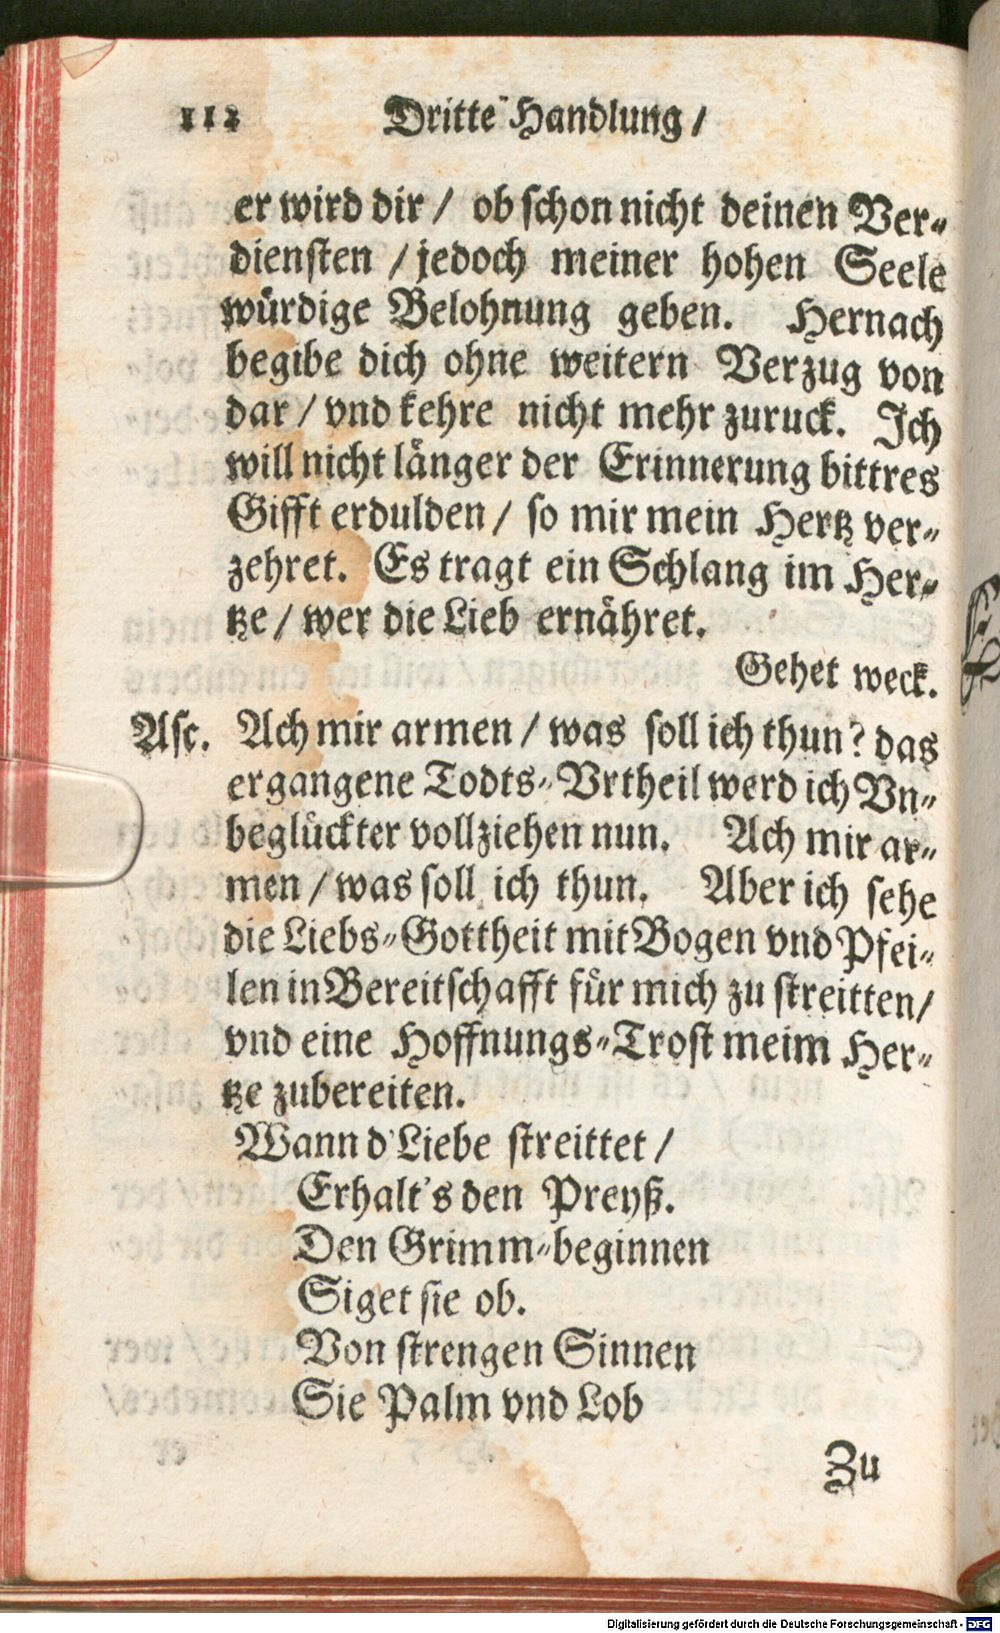 112 Dritte Handlung /
er wird dir / ob schon nicht deinen Ver-
diensten / jedoch meiner hohen Seele
würdige Belohnung geben. Hernach
begibe dich ohne weitern Verzug von
dar / vnd kehre nicht mehr zuruck. Ich
will nicht länger der Erinnerung bittres
Gifft erdulden / so mir mein Hertz ver-
zehret. Es tragt ein Schlang im Her-
tze / wer die Lieb ernähret.
Gehet weck.
Asc. Ach mir armen / was soll ich thun? das
ergangene Todts-Vrtheil werd ich Vn-
beglückter vollziehen nun. Ach mir ar-
men / was soll ich thun. Aber ich sehe
die Liebs-Gottheit mit Bogen vnd Pfei-
len in Bereitschafft für mich zu streitten /
vnd eine Hoffnungs-Trost meim Her-
tze zubereiten.
Wann d'Liebe streittet /
Erhalt's den Preyß.
Den Grimm-beginnen
Siget sie ob.
Von strengen Sinnen
Sie Palm vnd Lob
Zu
Digitalisierung gefördert durch die Deutsche Forschungsgemeinschaft - DFG